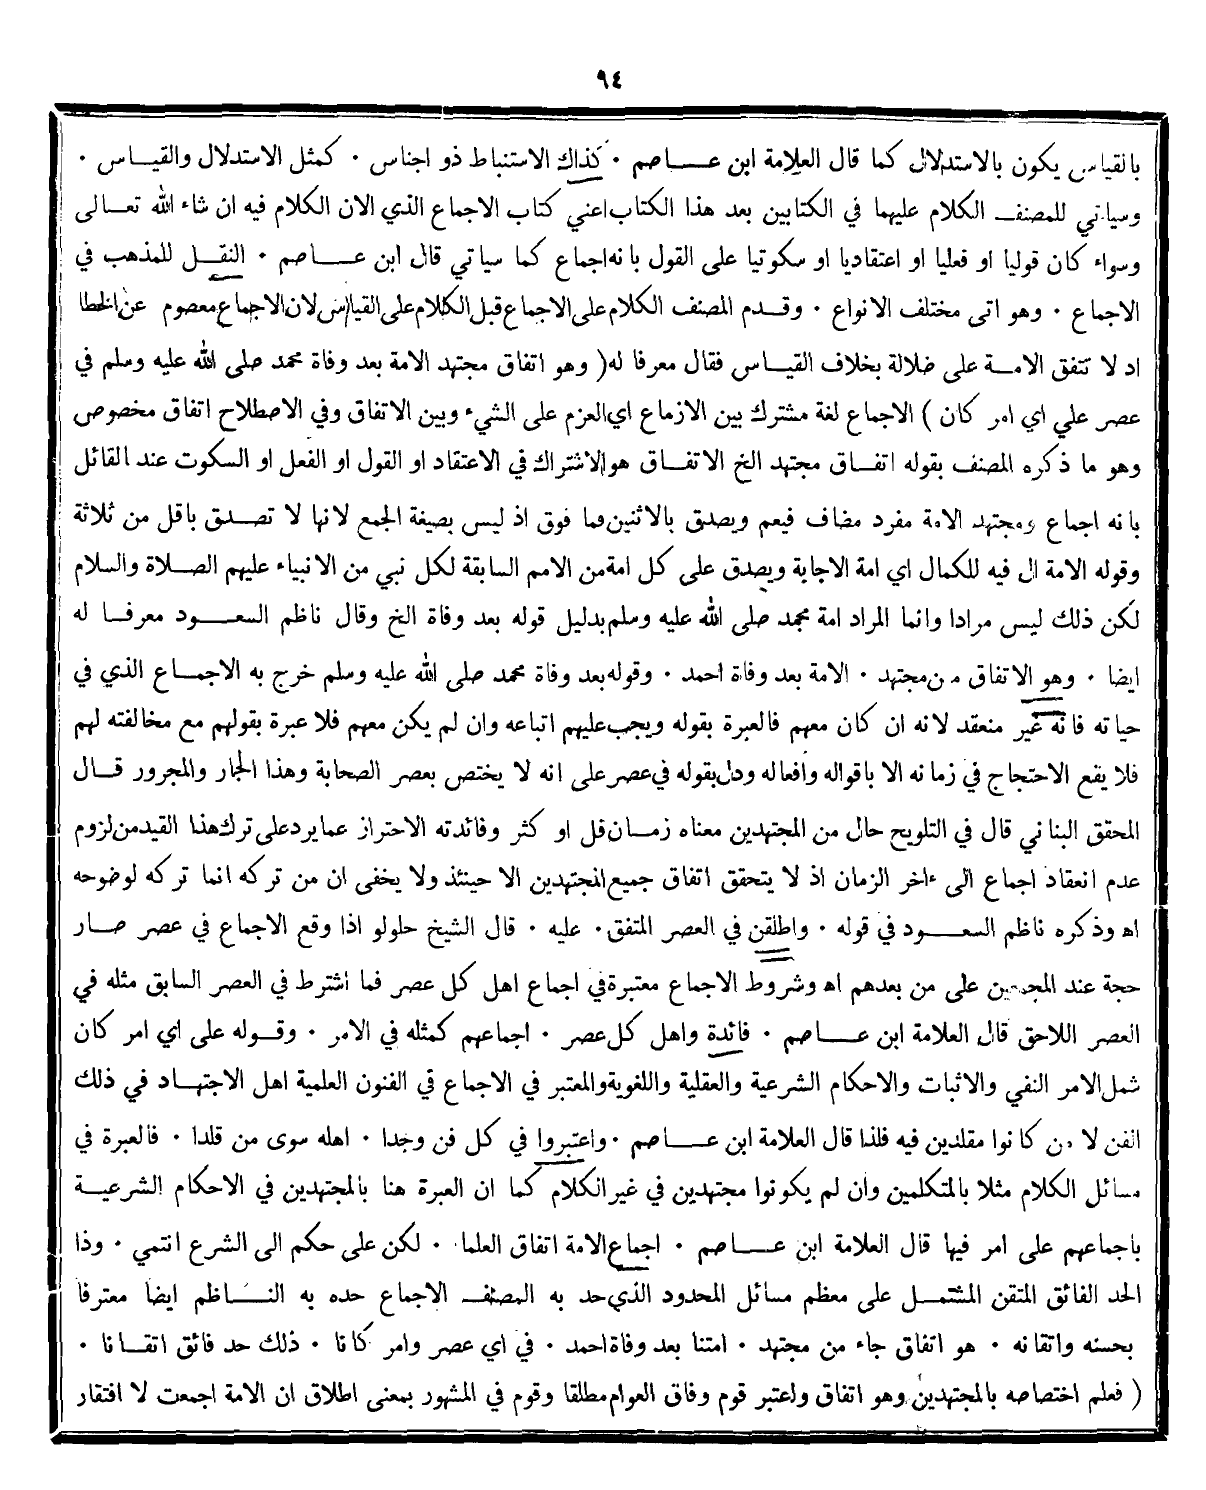 ٩٤
بالقياس يكون بالاستدلال كما قال العلامة ابن عاصم ٠ كذاك الاستنباط ذو اجناس ٠ كمثل الاستدلال والقياس ٠
وسياتي للمصنف الكلام عليهما في الكتابين بعد هذا الكتاب اعني كتاب الاجماع الذي الان الكلام فيه ان شاء الله تعالى
وسواء كان قوليا او فعليا او اعتقاديا او سكوتيا على القول بانه اجماع كما سياتي قال ابن عاصم ٠ النقل للمذهب في
الاجماع ٠ وهو اتى مختلف الانواع ٠ وقدم المصنف الكلام على الاجماع قبل الكلام على القياس لان الاجماع معصوم عن الخطا
اد لا تتفق الامة على ضلالة بخلاف القياس فقال معرفا له ( وهو اتفاق مجتهد الامة بعد وفاة محمد صلى الله عليه وسلم في
عصر علي اي امر كان ) الاجماع لغة مشترك بين الازماع اي العزم على الشيء وبين الاتفاق وفي الاصطلاح اتفاق مخصوص
وهو ما ذكره المصنف بقوله اتفاق مجتهد الخ الاتفاق هو الاشتراك في الاعتقاد او القول او الفعل او السكوت عند القائل
بانه اجماع ومجتهد الامة مفرد مضاف فيعم ويصدق بالاثنين فما فوق اذ ليس بصيغة الجمع لانها لا تصدق باقل من ثلاثة
وقوله الامة ال فيه للكمال اي امة الاجابة ويصدق على كل امة من الامم السابقة لكل نبي من الانبياء عليهم الصلاة والسلام
لكن ذلك ليس مرادا وانما المراد امة محمد صلى الله عليه وسلم بدليل قوله بعد وفاة الخ وقال ناظم السعود معرفا له
ايضا ٠ وهو الاتفاق من مجتهد ٠ الامة بعد وفاة احمد ٠ وقوله بعد وفاة محمد صلى الله عليه وسلم خرج به الاجماع الذي في
حياته فانه غير منعقد لانه ان كان معهم فالعبرة بقوله ويجب عليهم اتباعه وان لم يكن معهم فلا عبرة بقولهم مع مخالفته لهم
فلا يقع الاحتجاج في زمانه الا باقواله وافعاله ودل بقوله في عصر على انه لا يختص بعصر الصحابة وهذا الجار والمجرور قال
المحقق البناني قال في التلويح حال من المجتهدين معناه زمان قل او كثر وفائدته الاحتراز عما يرد على ترك هذا القيد من لزوم
عدم انعقاد اجماع الى ءاخر الزمان اذ لا يتحقق اتفاق جميع المجتهدين الا حينئذ ولا يخفى ان من تركه انما تركه لوضوحه
اه وذكره ناظم السعود في قوله ٠ واطلقن في العصر المتفق ٠ عليه ٠ قال الشيخ حلولو اذا وقع الاجماع في عصر صار
حجة عند المجمعين على من بعدهم اه وشروط الاجماع معتبرة في اجماع اهل كل عصر فما اشترط في العصر السابق مثله في
العصر اللاحق قال العلامة ابن عاصم ٠ فائدة واهل كل عصر ٠ اجماعهم كمثله في الامر ٠ وقوله على اي امر كان
شمل الامر النفي والاثبات والاحكام الشرعية والعقلية واللغوية والمعتبر في الاجماع في الفنون العلمية اهل الاجتهاد في ذلك
الفن لا من كانوا مقلدين فيه فلذا قال العلامة ابن عاصم ٠ واعتبروا في كل فن وجدا ٠ اهله سوى من قلدا ٠ فالعبرة في
مسائل الكلام مثلا بالمتكلمين وان لم يكونوا مجتهدين في غير الكلام كما ان العبرة هنا بالمجتهدين في الاحكام الشرعية
باجماعهم على امر فيها قال العلامة ابن عاصم ٠ اجماع الامة اتفاق العلما ٠ لكن على حكم الى الشرع انتمي ٠ وذا
الحد الفائق المتقن المشتمل على معظم مسائل المحدود الذي حد به المصنف الاجماع حده به الناظم ايضا معترفا
بحسنه واتقانه ٠ هو اتفاق جاء من مجتهد ٠ امتنا بعد وفاة احمد ٠ في اي عصر وامر كانا ٠ ذلك حد فائق اتقانا ٠
( فعلم اختصاصه بالمجتهدين وهو اتفاق واعتبر قوم وفاق العوام مطلقا وقوم في المشهور بمعنى اطلاق ان الامة اجمعت لا افتقار